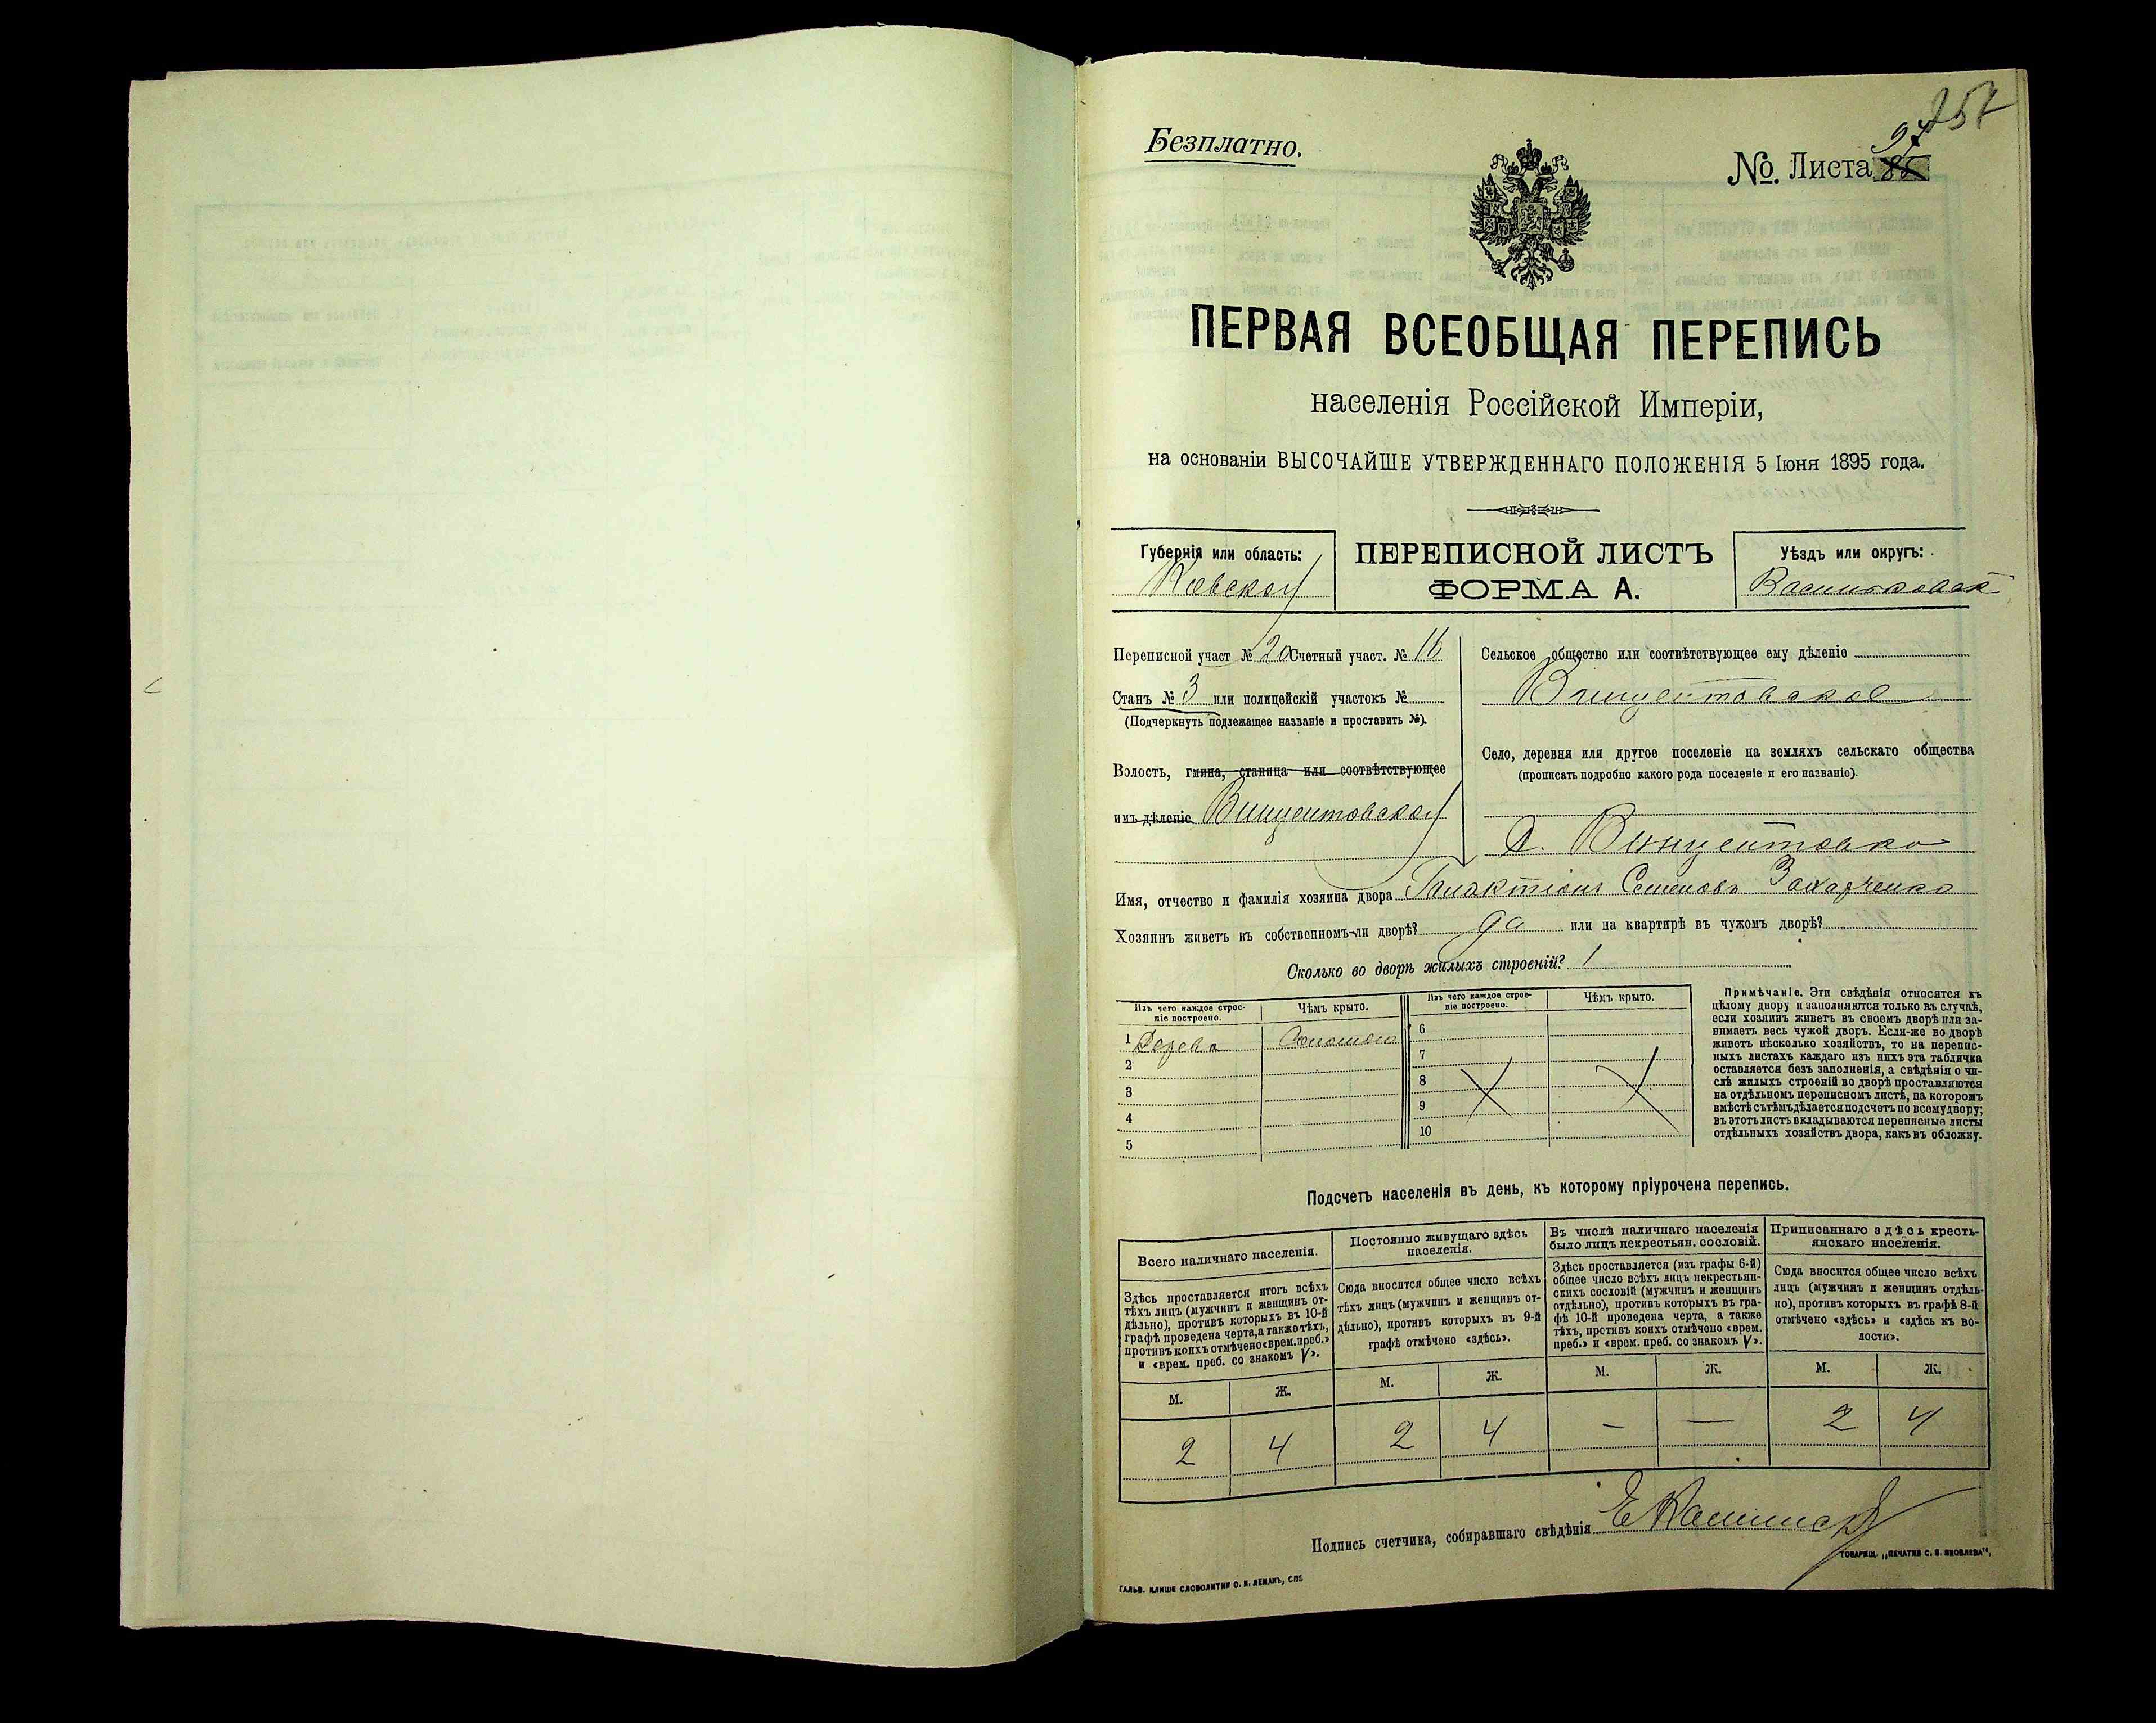 Безплатно.
No. Листа 97
ПЕРВАЯ ВСЕОБЩАЯ ПЕРЕПИСЬ
населенія Россійской Имперіи,
на основаніи ВЫСОЧАЙШЕ УТВЕРЖДЕННАГО ПОЛОЖЕНІЯ 5 Іюня 1895 года.
Губернія или область:
Кіевской
ПЕРЕПИСНОЙ ЛИСТЪ
ФОРМА А.
Уѣздъ или округъ:
Васильковскій
Переписной участ № 20 Счетный участ. № 11
Станъ № 3 или полицейскій участокъ №
(Подчеркнуть подлежащее названіе и проставить №).
Волость, гмина, станица или соотвѣтствующее
имъ дѣленіе Винцентовской
Сельское общество или соотвѣтствующее ему дѣленіе
Винцентовское
Село, деревня или другое поселеніе на земляхъ сельскаго общества
(прописать подробно какого рода поселеніе и его названіе).
Д. Винцентовка
Имя, отчество и фамилія хозяина двора Галактіонъ Семеновъ Захарченко
Хозяинъ живетъ въ собственномъ-ли дворѣ? да или на квартирѣ въ чужомъ дворѣ?
Сколько во дворѣ жилыхъ строеній? 1
Изъ чего каждое строеніе построено.
Чѣмъ крыто.
Изъ чего каждое строеніе построено.
Чѣмъ крыто.
1 Дерева Соломою
2
3
4
5
6
7
8
9
10
Примѣчаніе. Эти свѣдѣнія относятся къ
цѣлому двору и заполняются только въ случаѣ,
если хозяинъ живетъ въ своемъ дворѣ или за-
нимаетъ весь чужой дворъ. Если-же во дворѣ
живетъ нѣсколько хозяйствъ, то на перепис-
ныхъ листахъ каждаго изъ нихъ эта табличка
оставляется безъ заполненія, а свѣдѣнія о чи-
слѣ жилыхъ строеній во дворѣ проставляются
на отдѣльномъ переписномъ листѣ, на которомъ
вмѣстѣ съ тѣмъ дѣлается подсчетъ по всему двору;
въ этотъ листъ вкладываются переписные листы
отдѣльныхъ хозяйствъ двора, какъ въ обложку.
Подсчетъ населенія въ день, къ которому пріурочена перепись.
Всего наличнаго населенія.
Здѣсь проставляется итогъ всѣхъ
тѣхъ лицъ (мужчинъ и женщинъ от-
дѣльно), противъ которыхъ въ 10-й
графѣ проведена черта, а также тѣхъ,
противъ коихъ отмѣчено «врем. преб.»
и «врем. преб. со знакомъ V».
М. Ж.
2 4
Постоянно живущаго здѣсь
населенія.
Сюда вносится общее число всѣхъ
тѣхъ лицъ (мужчинъ и женщинъ от-
дѣльно), противъ которыхъ въ 9-й
графѣ отмѣчено «здѣсь».
М. Ж.
2 4
Въ числѣ наличнаго населенія
было лицъ некрестьян. сословій.
Здѣсь проставляется (изъ графы 6-й)
общее число всѣхъ лицъ некрестьян-
скихъ сословій (мужчинъ и женщинъ
отдѣльно), противъ которыхъ въ гра-
фѣ 10-й проведена черта, а также
тѣхъ, противъ коихъ отмѣчено «врем.
преб.» и «врем. преб. со знакомъ V».
М. Ж.
— —
Приписаннаго здѣсь кресть-
янскаго населенія.
Сюда вносится общее число всѣхъ
лицъ (мужчинъ и женщинъ отдѣль-
но), противъ которыхъ въ графѣ 8-й
отмѣчено «здѣсь» и «здѣсь къ во-
лости».
М. Ж.
2 4
Подпись счетчика, собиравшаго свѣдѣнія
ГАЛЬВ. КЛИШЕ СЛОВОЛИТНИ О. И. ЛЕМАНЪ, СПБ
ТОВАРИЩ. „ПЕЧАТНЯ С. П. ЯКОВЛЕВА".